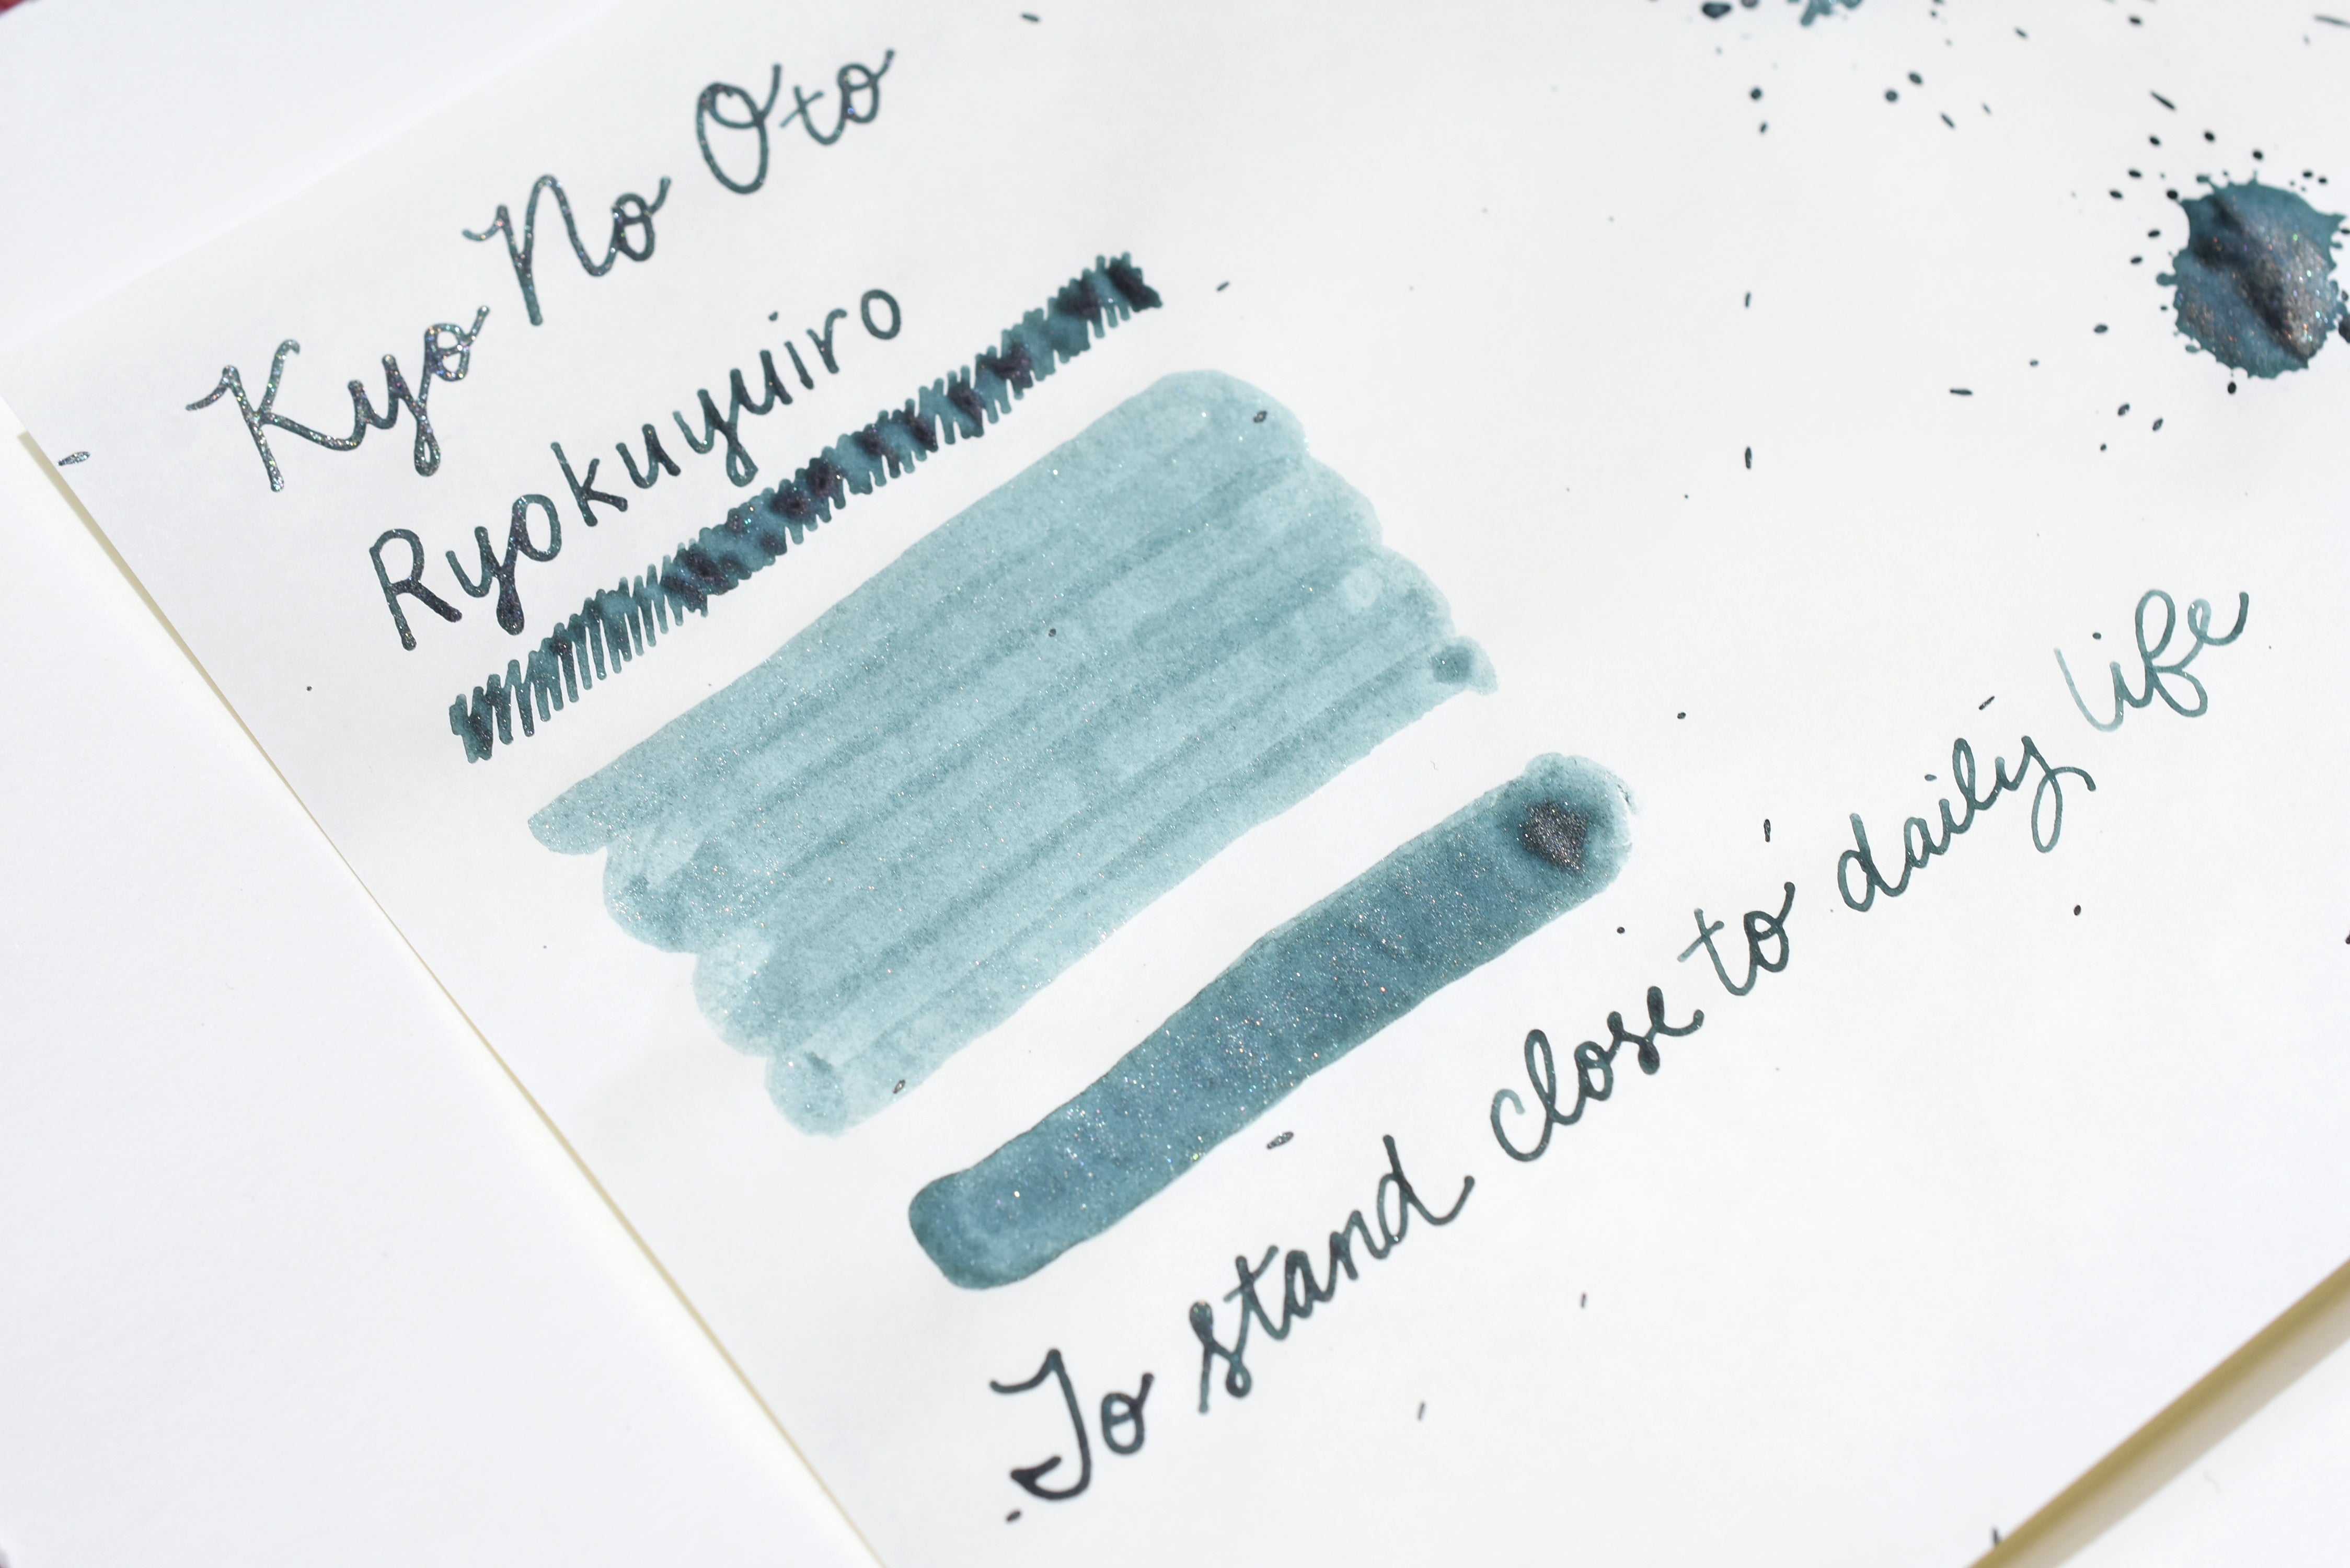 Kyo No Oto
Ryokuyuiro
To stand close to daily life